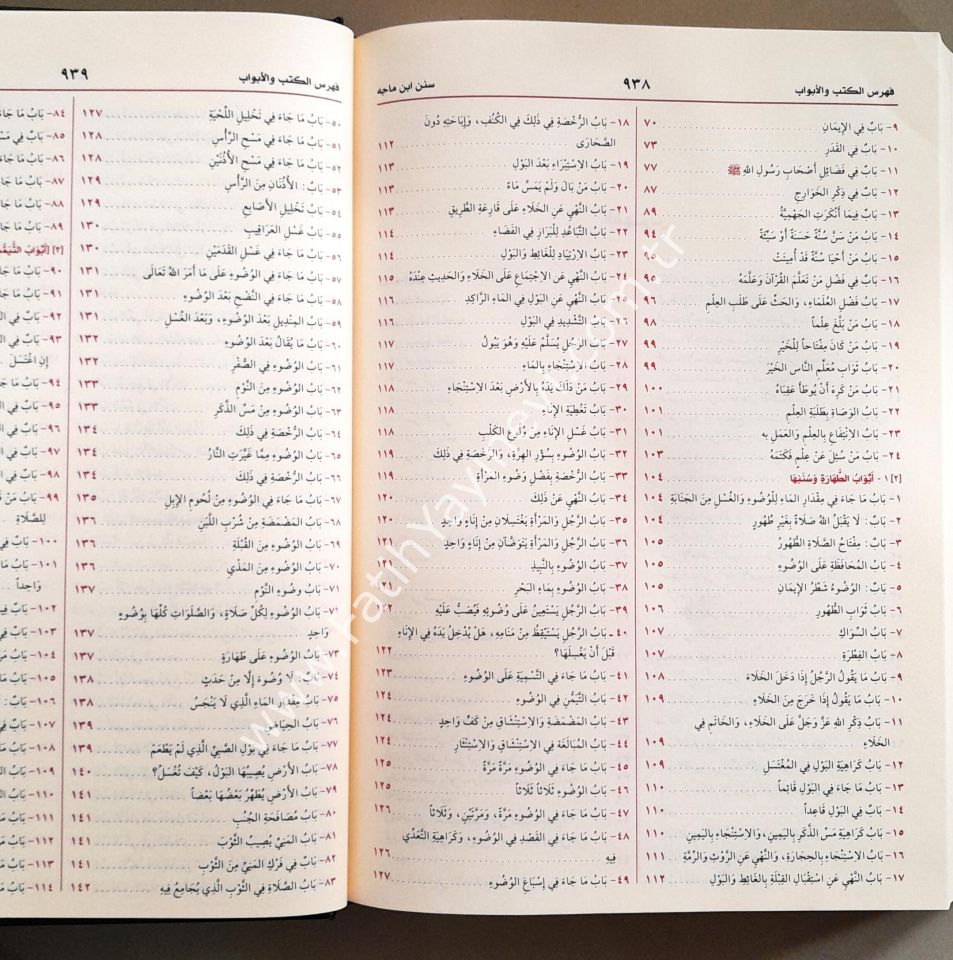 فهرس الكتب والأبواب
٩٣٨
سنن ابن ماجه
٩- بَابٌ فِي الإِيمَانِ ٧٠
١٠- بَابٌ فِي القَدَرِ ٧٣
١١- بَابٌ فِي فَضَائِلِ أَصْحَابِ رَسُولِ اللهِ ﷺ ٧٧
١٢- بَابٌ فِي ذِكْرِ الخَوَارِجِ ٨٧
١٣- بَابٌ فِيمَا أَنْكَرَتِ الجَهْمِيَّةُ ٨٩
١٤- بَابُ مَنْ سَنَّ سُنَّةً حَسَنَةً أَوْ سَيِّئَةً ٩٤
١٥- بَابُ مَنْ أَحْيَا سُنَّةً قَدْ أُمِيتَتْ ٩٥
١٦- بَابٌ فِي فَضْلِ مَنْ تَعَلَّمَ القُرْآنَ وَعَلَّمَهُ ٩٥
١٧- بَابُ فَضْلِ العُلَمَاءِ، وَالحَثِّ عَلَى طَلَبِ العِلْمِ ٩٦
١٨- بَابُ مَنْ بَلَّغَ عِلْماً ٩٨
١٩- بَابُ مَنْ كَانَ مِفْتَاحاً لِلْخَيْرِ ٩٩
٢٠- بَابُ ثَوَابِ مُعَلِّمِ النَّاسِ الخَيْرَ ٩٩
٢١- بَابُ مَنْ كَرِهَ أَنْ يُوطَأَ عَقِبَاهُ ١٠٠
٢٢- بَابُ الوَصَاةِ بِطَلَبَةِ العِلْمِ ١٠١
٢٣- بَابُ الانْتِفَاعِ بِالعِلْمِ وَالعَمَلِ به ١٠١
٢٤- بَابُ مَنْ سُئِلَ عَنْ عِلْمٍ فَكَتَمَهُ ١٠٣
[٢] ١- أَبْوَابُ الطَّهَارَةِ وَسُنَنِهَا ١٠٤
١- بَابُ مَا جَاءَ فِي مِقْدَارِ المَاءِ لِلْوُضُوءِ وَالغُسْلِ مِنَ الجَنَابَةِ ١٠٤
٢- بَابٌ: لَا يَقْبَلُ اللهُ صَلَاةً بِغَيْرِ طُهُورٍ ١٠٤
٣- بَابٌ: مِفْتَاحُ الصَّلَاةِ الطُّهُورُ ١٠٥
٤- بَابُ المُحَافَظَةِ عَلَى الوُضُوءِ ١٠٥
٥- بَابٌ: الوُضُوءُ شَطْرُ الإِيمَانِ ١٠٥
٦- بَابُ ثَوَابِ الطُّهُورِ ١٠٦
٧- بَابُ السِّوَاكِ ١٠٧
٨- بَابُ الفِطْرَةِ ١٠٧
٩- بَابُ مَا يَقُولُ الرَّجُلُ إِذَا دَخَلَ الخَلَاءَ ١٠٨
١٠- بَابُ مَا يَقُولُ إِذَا خَرَجَ مِنَ الخَلَاءِ ١٠٩
١١- بَابُ ذِكْرِ اللهِ عَزَّ وَجَلَّ عَلَى الخَلَاءِ، وَالخَاتَمِ فِي
الخَلَاءِ ١٠٩
١٢- بَابُ كَرَاهِيَةِ البَوْلِ فِي المُغْتَسَلِ ١٠٩
١٣- بَابُ مَا جَاءَ فِي البَوْلِ قَائِماً ١١٠
١٤- بَابٌ فِي البَوْلِ قَاعِداً ١١٠
١٥- بَابُ كَرَاهِيَةِ مَسِّ الذَّكَرِ بِاليَمِينِ، وَالاسْتِنْجَاءِ بِاليَمِينِ ١١٠
١٦- بَابُ الاسْتِنْجَاءِ بِالحِجَارَةِ، وَالنَّهْيِ عَنِ الرَّوْثِ وَالرِّمَّةِ ١١١
١٧- بَابُ النَّهْيِ عَنِ اسْتِقْبَالِ القِبْلَةِ بِالغَائِطِ وَالبَوْلِ ١١٢
١٨- بَابُ الرُّخْصَةِ فِي ذَلِكَ فِي الكُنُفِ، وَإِبَاحَتِهِ دُونَ
الصَّحَارَى ١١٢
١٩- بَابُ الاسْتِبْرَاءِ بَعْدَ البَوْلِ ١١٣
٢٠- بَابُ مَنْ بَالَ وَلَمْ يَمَسَّ مَاءً ١١٣
٢١- بَابُ النَّهْيِ عَنِ الخَلَاءِ عَلَى قَارِعَةِ الطَّرِيقِ ١١٣
٢٢- بَابُ التَّبَاعُدِ لِلْبَرَازِ فِي الفَضَاءِ ١١٤
٢٣- بَابُ الارْتِيَادِ لِلْغَائِطِ وَالبَوْلِ ١١٤
٢٤- بَابُ النَّهْيِ عَنِ الاجْتِمَاعِ عَلَى الخَلَاءِ وَالحَدِيثِ عِنْدَهُ ١١٥
٢٥- بَابُ النَّهْيِ عَنِ البَوْلِ فِي المَاءِ الرَّاكِدِ ١١٦
٢٦- بَابُ التَّشْدِيدِ فِي البَوْلِ ١١٦
٢٧- بَابُ الرَّجُلِ يُسَلَّمُ عَلَيْهِ وَهُوَ يَبُولُ ١١٧
٢٨- بَابُ الاسْتِنْجَاءِ بِالمَاءِ ١١٧
٢٩- بَابُ مَنْ دَلَكَ يَدَهُ بِالأَرْضِ بَعْدَ الاسْتِنْجَاءِ ١١٨
٣٠- بَابُ تَغْطِيَةِ الإِنَاءِ ١١٨
٣١- بَابُ غَسْلِ الإِنَاءِ مِنْ وُلُوغِ الكَلْبِ ١١٨
٣٢- بَابُ الوُضُوءِ بِسُؤْرِ الهِرَّةِ، وَالرُّخْصَةِ فِي ذَلِكَ ١١٩
٣٣- بَابُ الرُّخْصَةِ بِفَضْلِ وَضُوءِ المَرْأَةِ ١١٩
٣٤- بَابُ النَّهْيِ عَنْ ذَلِكَ ١٢٠
٣٥- بَابُ الرَّجُلِ وَالمَرْأَةِ يَغْتَسِلَانِ مِنْ إِنَاءٍ وَاحِدٍ ١٢٠
٣٦- بَابُ الرَّجُلِ وَالمَرْأَةِ يَتَوَضَّآنِ مِنْ إِنَاءٍ وَاحِدٍ ١٢١
٣٧- بَابُ الوُضُوءِ بِالنَّبِيذِ ١٢١
٣٨- بَابُ الوُضُوءِ بِمَاءِ البَحْرِ ١٢١
٣٩- بَابُ الرَّجُلِ يَسْتَعِينُ عَلَى وُضُوئِهِ فَيُصَبُّ عَلَيْهِ ١٢٢
٤٠- بَابُ الرَّجُلِ يَسْتَيْقِظُ مِنْ مَنَامِهِ، هَلْ يُدْخِلُ يَدَهُ فِي الإِنَاءِ
قَبْلَ أَنْ يَغْسِلَهَا؟ ١٢٢
٤١- بَابُ مَا جَاءَ فِي التَّسْمِيَةِ عَلَى الوُضُوءِ ١٢٣
٤٢- بَابُ التَّيَمُّنِ فِي الوُضُوءِ ١٢٤
٤٣- بَابُ المَضْمَضَةِ وَالاسْتِنْشَاقِ مِنْ كَفٍّ وَاحِدٍ ١٢٤
٤٤- بَابُ المُبَالَغَةِ فِي الاسْتِنْشَاقِ وَالاسْتِنْثَارِ ١٢٤
٤٥- بَابُ مَا جَاءَ فِي الوُضُوءِ مَرَّةً مَرَّةً ١٢٥
٤٦- بَابُ الوُضُوءِ ثَلَاثاً ثَلَاثاً ١٢٥
٤٧- بَابُ مَا جَاءَ فِي الوُضُوءِ مَرَّةً، وَمَرَّتَيْنِ، وَثَلَاثاً ١٢٦
٤٨- بَابُ مَا جَاءَ فِي القَصْدِ فِي الوُضُوءِ، وَكَرَاهِيَةِ التَّعَدِّي
فِيهِ ١٢٦
٤٩- بَابُ مَا جَاءَ فِي إِسْبَاغِ الوُضُوءِ ١٢٧
فهرس الكتب والأبواب
٩٣٩
٥٠- بَابُ مَا جَاءَ فِي تَخْلِيلِ اللِّحْيَةِ ١٢٧
٥١- بَابُ مَا جَاءَ فِي مَسْحِ الرَّأْسِ ١٢٨
٥٢- بَابُ مَا جَاءَ فِي مَسْحِ الأُذُنَيْنِ ١٢٨
٥٣- بَابٌ: الأُذُنَانِ مِنَ الرَّأْسِ ١٢٩
٥٤- بَابُ تَخْلِيلِ الأَصَابِعِ ١٢٩
٥٥- بَابُ غَسْلِ العَرَاقِيبِ ١٣٠
٥٦- بَابُ مَا جَاءَ فِي غَسْلِ القَدَمَيْنِ ١٣٠
٥٧- بَابُ مَا جَاءَ فِي الوُضُوءِ عَلَى مَا أَمَرَ اللهُ تَعَالَى ١٣١
٥٨- بَابُ مَا جَاءَ فِي النَّضْحِ بَعْدَ الوُضُوءِ ١٣١
٥٩- بَابُ المِنْدِيلِ بَعْدَ الوُضُوءِ، وَبَعْدَ الغُسْلِ ١٣١
٦٠- بَابُ مَا يُقَالُ بَعْدَ الوُضُوءِ ١٣٢
٦١- بَابُ الوُضُوءِ فِي الصُّفْرِ ١٣٢
٦٢- بَابُ الوُضُوءِ مِنَ النَّوْمِ ١٣٣
٦٣- بَابُ الوُضُوءِ مِنْ مَسِّ الذَّكَرِ ١٣٣
٦٤- بَابُ الرُّخْصَةِ فِي ذَلِكَ ١٣٤
٦٥- بَابُ الوُضُوءِ مِمَّا غَيَّرَتِ النَّارُ ١٣٤
٦٦- بَابُ الرُّخْصَةِ فِي ذَلِكَ ١٣٤
٦٧- بَابُ مَا جَاءَ فِي الوُضُوءِ مِنْ لُحُومِ الإِبِلِ ١٣٥
٦٨- بَابُ المَضْمَضَةِ مِنْ شُرْبِ اللَّبَنِ ١٣٦
٦٩- بَابُ الوُضُوءِ مِنَ القُبْلَةِ ١٣٦
٧٠- بَابُ الوُضُوءِ مِنَ المَذْيِ ١٣٦
٧١- بَابُ وضوءِ النَّوْمِ ١٣٧
٧٢- بَابُ الوُضُوءِ لِكُلِّ صَلَاةٍ، وَالصَّلَوَاتِ كُلِّهَا بِوُضُوءٍ
وَاحِدٍ ١٣٧
٧٣- بَابُ الوُضُوءِ عَلَى طَهَارَةٍ ١٣٧
٧٤- بَابٌ: لَا وُضُوءَ إِلَّا مِنْ حَدَثٍ ١٣٨
٧٥- بَابُ مِقْدَارِ المَاءِ الَّذِي لَا يَنْجُسُ ١٣٨
٧٦- بَابُ الحِيَاضِ ١٣٩
٧٧- بَابُ مَا جَاءَ فِي بَوْلِ الصَّبِيِّ الَّذِي لَمْ يَطْعَمْ ١٣٩
٧٨- بَابُ الأَرْضِ يُصِيبُهَا البَوْلُ، كَيْفَ تُغْسَلُ؟ ١٤٠
٧٩- بَابُ الأَرْضِ يُطَهِّرُ بَعْضُهَا بَعْضاً ١٤١
٨٠- بَابُ مُصَافَحَةِ الجُنُبِ ١٤١
٨١- بَابُ المَنِيِّ يُصِيبُ الثَّوْبَ ١٤١
٨٢- بَابٌ فِي فَرْكِ المَنِيِّ مِنَ الثَّوْبِ ١٤١
٨٣- بَابُ الصَّلَاةِ فِي الثَّوْبِ الَّذِي يُجَامِعُ فِيهِ ١٤٢
٨٤- بَابُ مَا جَاءَ
٨٥- بَابٌ فِي
٨٦- بَابُ مَا جَاءَ
٨٧- بَابُ مَا جَاءَ
٨٨- بَابُ مَا جَاءَ
٨٩- بَابُ مَا جَاءَ
[٣] أَبْوَابُ
٩٠- بَابُ مَا جَاءَ
٩١- بَابٌ فِي
٩٢- بَابٌ فِي
٩٣- بَابٌ فِي
إِنِ اغْتَسَلَ
٩٤- بَابُ مَا جَاءَ
٩٥- بَابٌ فِي
٩٦- بَابٌ فِي
٩٧- بَابٌ فِي
٩٨- بَابٌ فِي
٩٩- بَابُ مَنْ
لِلصَّلَاةِ
١٠٠- بَابٌ فِي
١٠١- بَابُ مَا
وَاحِداً
١٠٢- بَابٌ
١٠٣- بَابٌ فِي
١٠٤- بَابُ
١٠٥- بَابُ مَنْ
١٠٦- بَابٌ
١٠٧- بَابٌ فِي
١٠٨- بَابُ مَا
١٠٩- بَابُ
١١٠- بَابٌ
١١١- بَابُ مَا
١١٢- بَابُ مَا
١١٣- بَابُ مَا
١١٤- بَابُ مَا
www.FatihYayinevi.com.tr